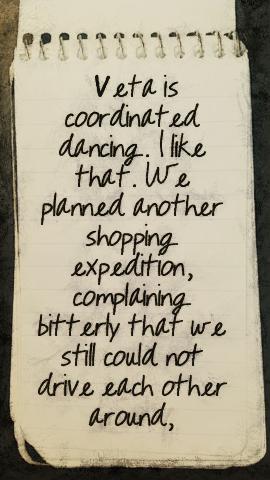 Veta is
coordinated
dancing. I like
that. We
planned another
shopping
expedition,
complaining
bitterly that we
still could not
drive each other
around,